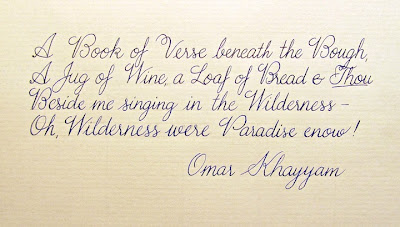 A Book of Verse beneath the Bough,
A Jug of Wine, a Loaf of Bread & Thou
Beside me singing in the Wilderness –
Oh, Wilderness were Paradise enow!
Omar Khayyam